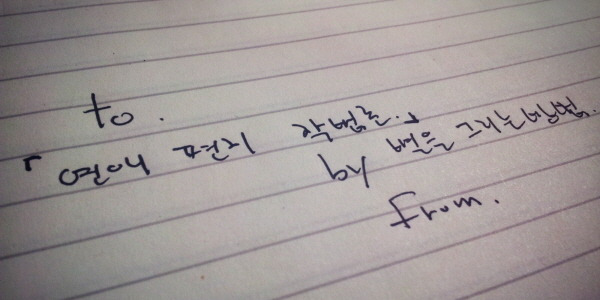 to.
「 연애 편지
by 별을 그리는방법.
from.